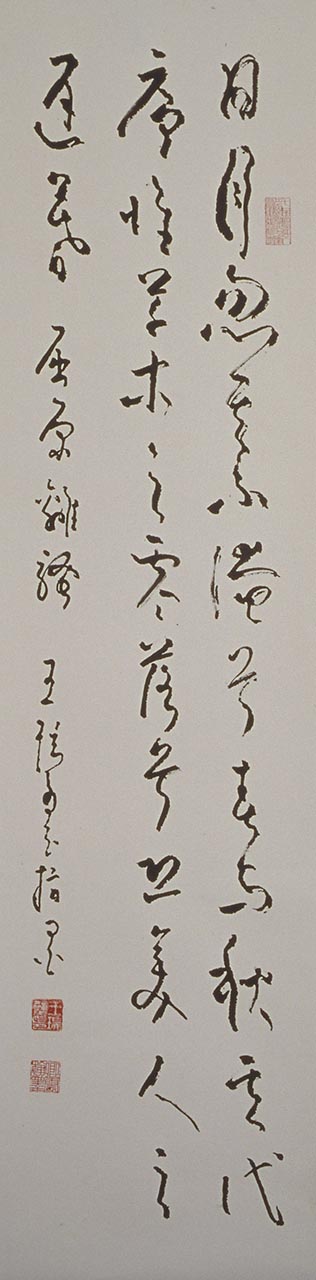 日月忽其不淹兮春與秋其代
序惟草木之零落兮恐美人之
遲暮 屈原離騷 王